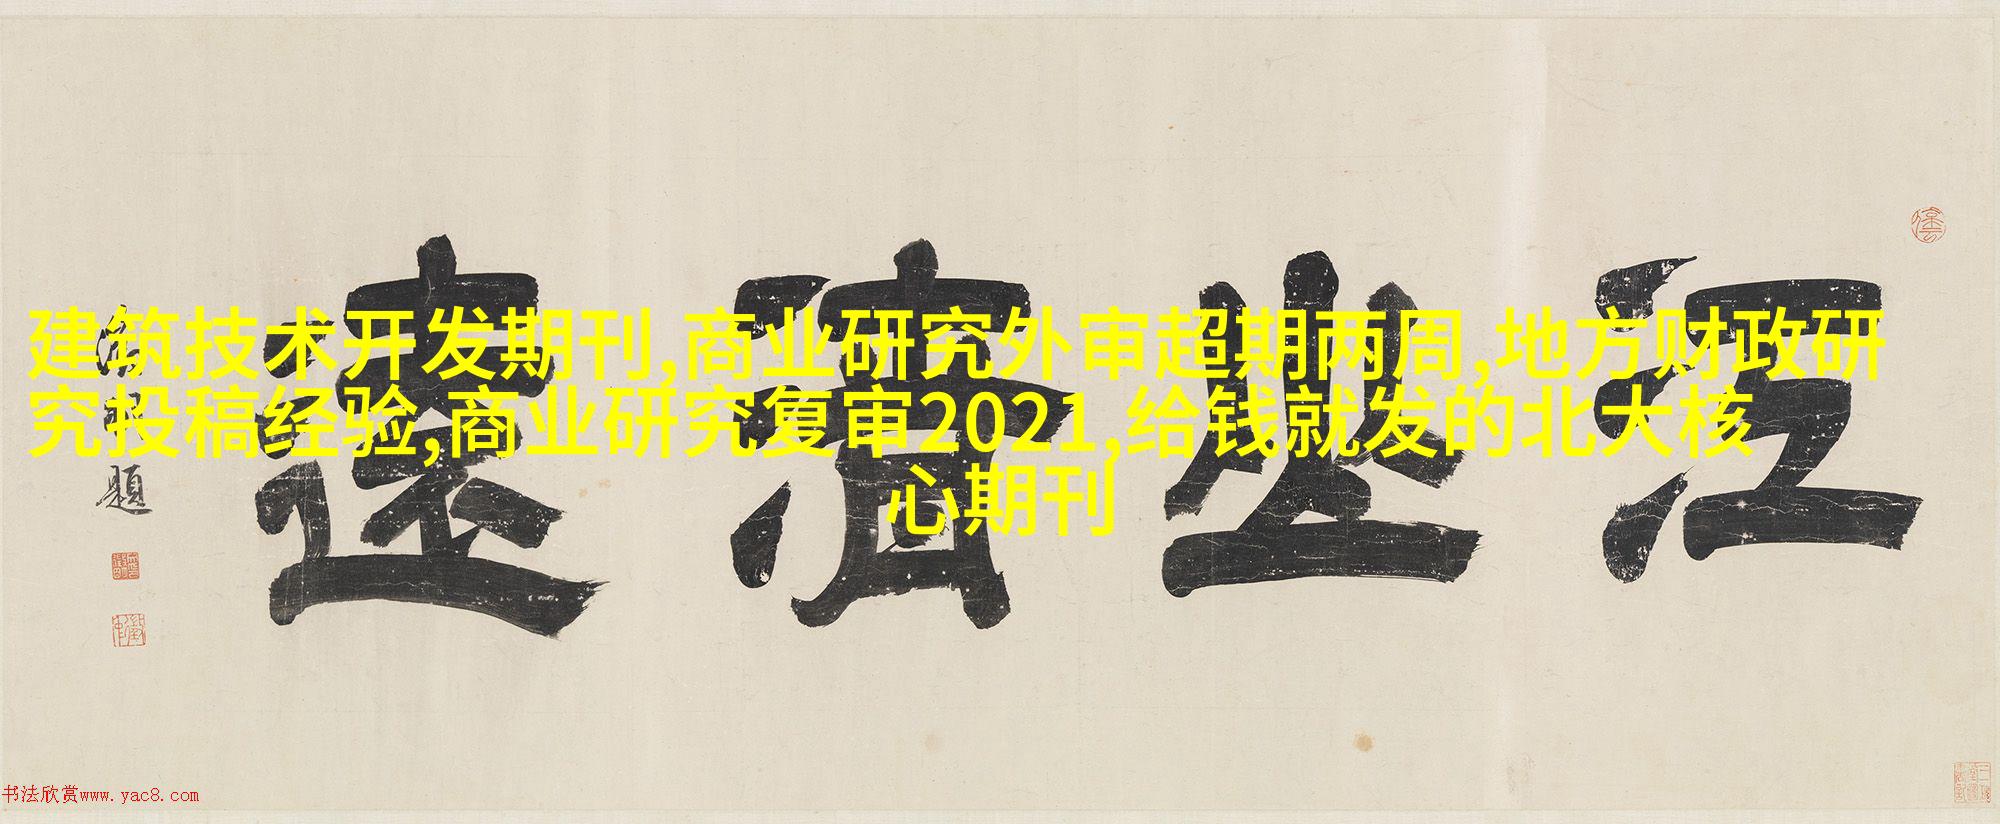 建筑技术开发期刊,商业研究外审超期两周,地方财政研
究投稿经验,商业研究复审2021,给钱就发的北大核
心期刊
江山清远
题
书法欣赏www.yac8.com